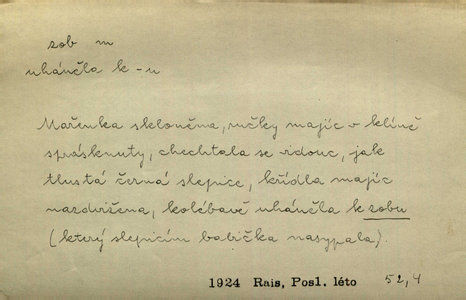 zob m
uháněla k -u
Mařenka skloněna, ručky majíc v klíně
spráskuty, chechtala se vidouc, jak
tlustá černá slepice, křídla majíc
nazdvižena, kolébavě uháněla k zobu
(který slepicím babička nasypala).
1924 Rais, Posl. léto 52,4